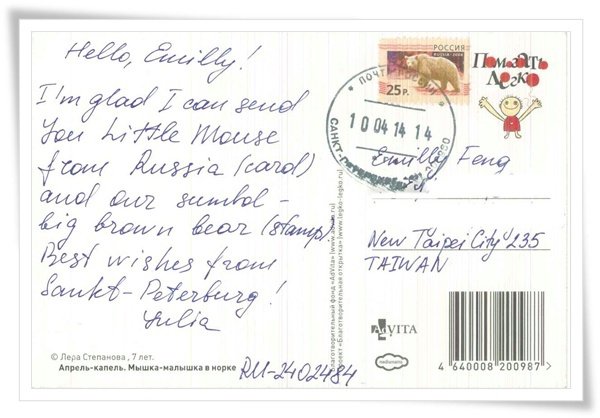 Hello, Emilly!
I'm glad I can send
You Little Mouse
from Russia (card)
and our sumbol-
big brown bear (stamp).
Best wishes from
Sankt-Peterburg!
Yulia
© Лера Степанова , 7 лет.
Апрель-капель. Мышка-малышка в норке
RU-2402484
Благотворительный фонд «AdVita» (www.advita.ru)
Проект «Благотворительная открытка» (www.legko-legko.ru)
РОССИЯ
RUSSIA
25 р.
ПОЧТА РОССИИ
10 04 14 14
САНКТ-ПЕТЕРБУРГ
Помогать
Легко
Emilly Feng
New Taipei City 235
TAIWAN
AdVITA
4 640008 200987 >